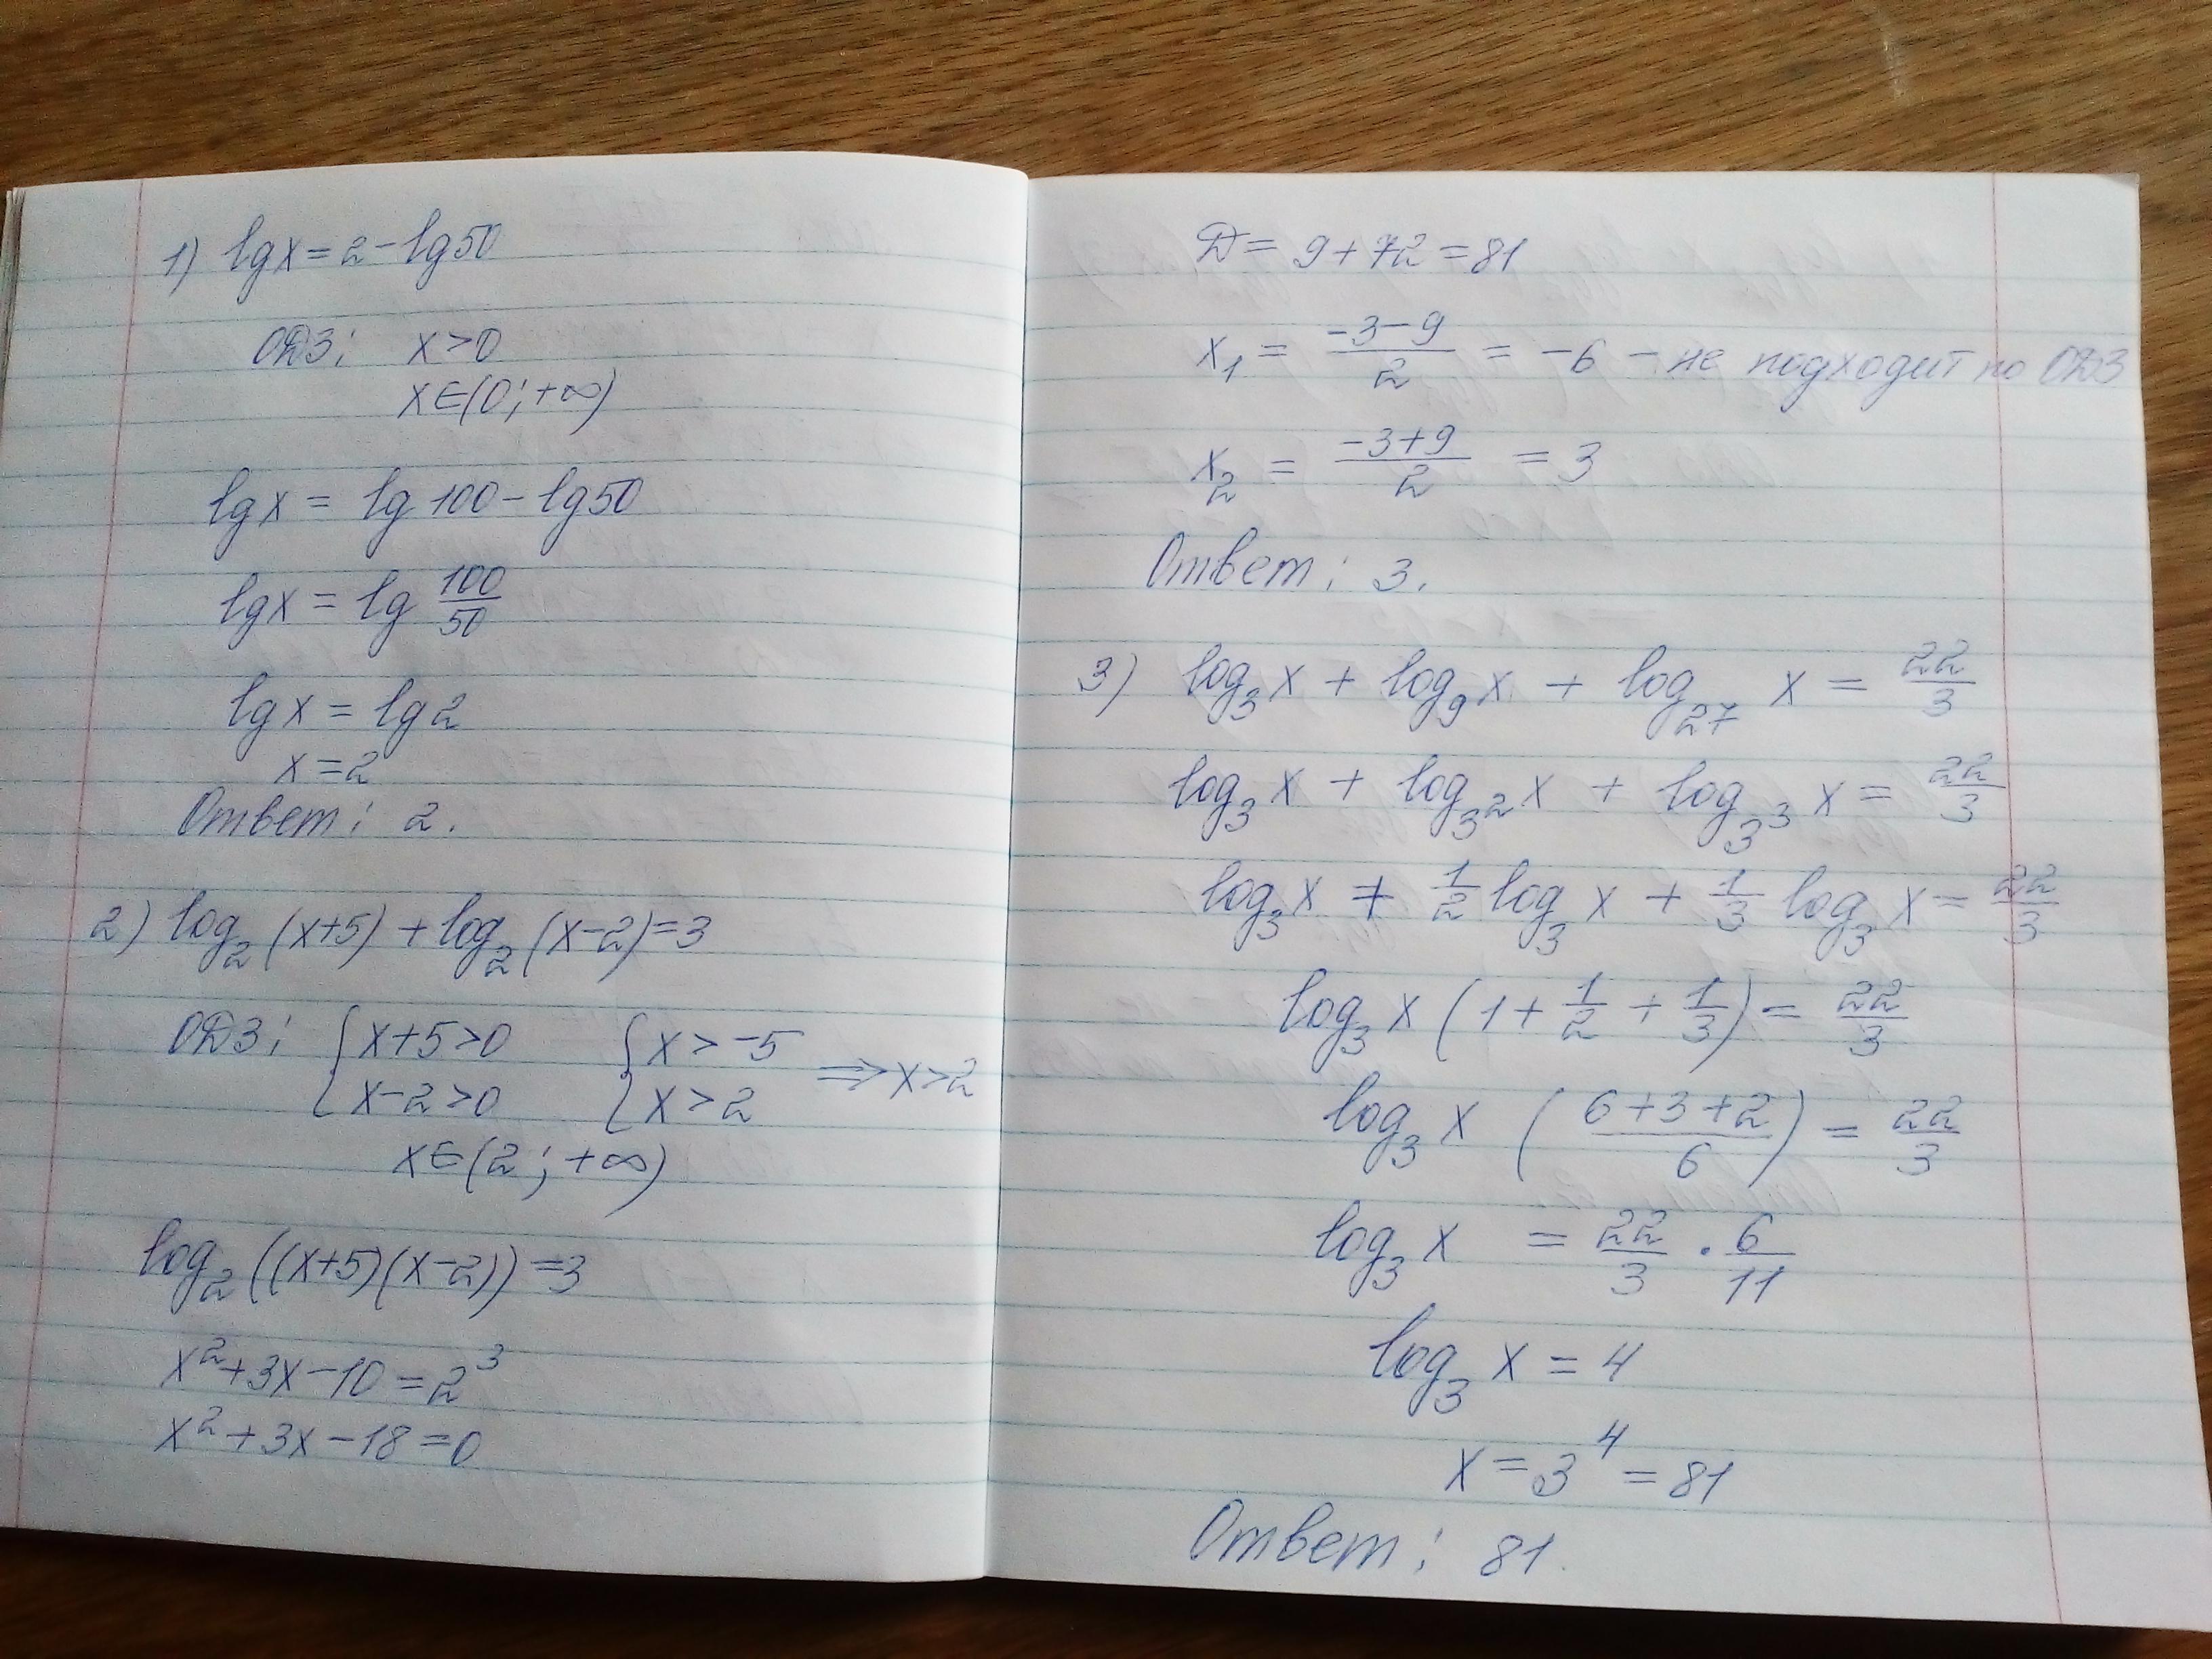 1) lg x = 2 - lg 50
ОДЗ: x > 0
x ∈ (0; +∞)
lg x = lg 100 - lg 50
lg x = lg 100/50
lg x = lg 2
x = 2
Ответ: 2.
2) log₂(x+5) + log₂(x-2) = 3
ОДЗ: { x+5>0 { x > -5
{ x-2>0 { x > 2 ⇒ x>2
x ∈ (2; +∞)
log₂((x+5)(x-2)) = 3
x² + 3x - 10 = 2³
x² + 3x - 18 = 0
Д = 9 + 72 = 81
x₁ = (-3-9)/2 = -6 - не подходит по ОДЗ
x₂ = (-3+9)/2 = 3
Ответ: 3.
3) log₃ x + log₉ x + log₂₇ x = 22/3
log₃ x + log_{3²} x + log_{3³} x = 22/3
log₃ x + 1/2 log₃ x + 1/3 log₃ x = 22/3
log₃ x (1 + 1/2 + 1/3) = 22/3
log₃ x ((6+3+2)/6) = 22/3
log₃ x = 22/3 · 6/11
log₃ x = 4
x = 3⁴ = 81
Ответ: 81.